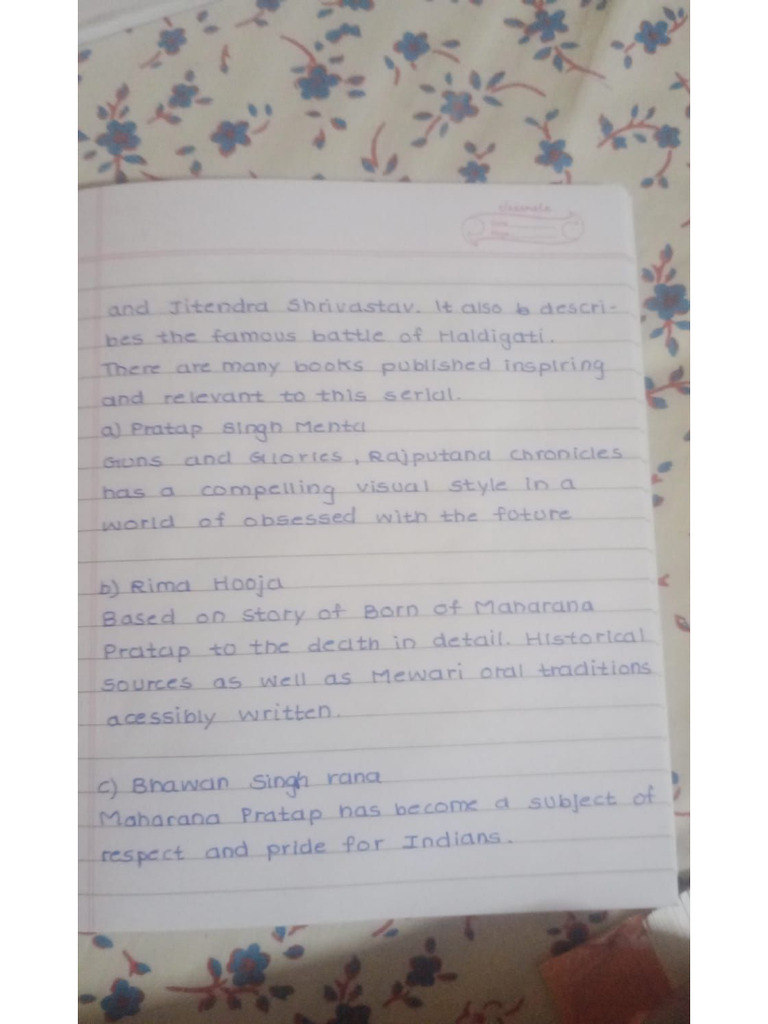 classmate
Date
Page
and Jitendra Shrivastav. It also b descri-
bes the famous battle of Haldigati.
There are many books published inspiring
and relevant to this serial.
a) Pratap Singh Mehta
Guns and Glories, Rajputana chronicles
has a compelling visual style in a
world of obsessed with the future
b) Rima Hooja
Based on story of Born of Maharana
Pratap to the death in detail. Historical
sources as well as Mewari oral traditions
acessibly written.
c) Bhawan Singh rana
Maharana Pratap has become a subject of
respect and pride for Indians.